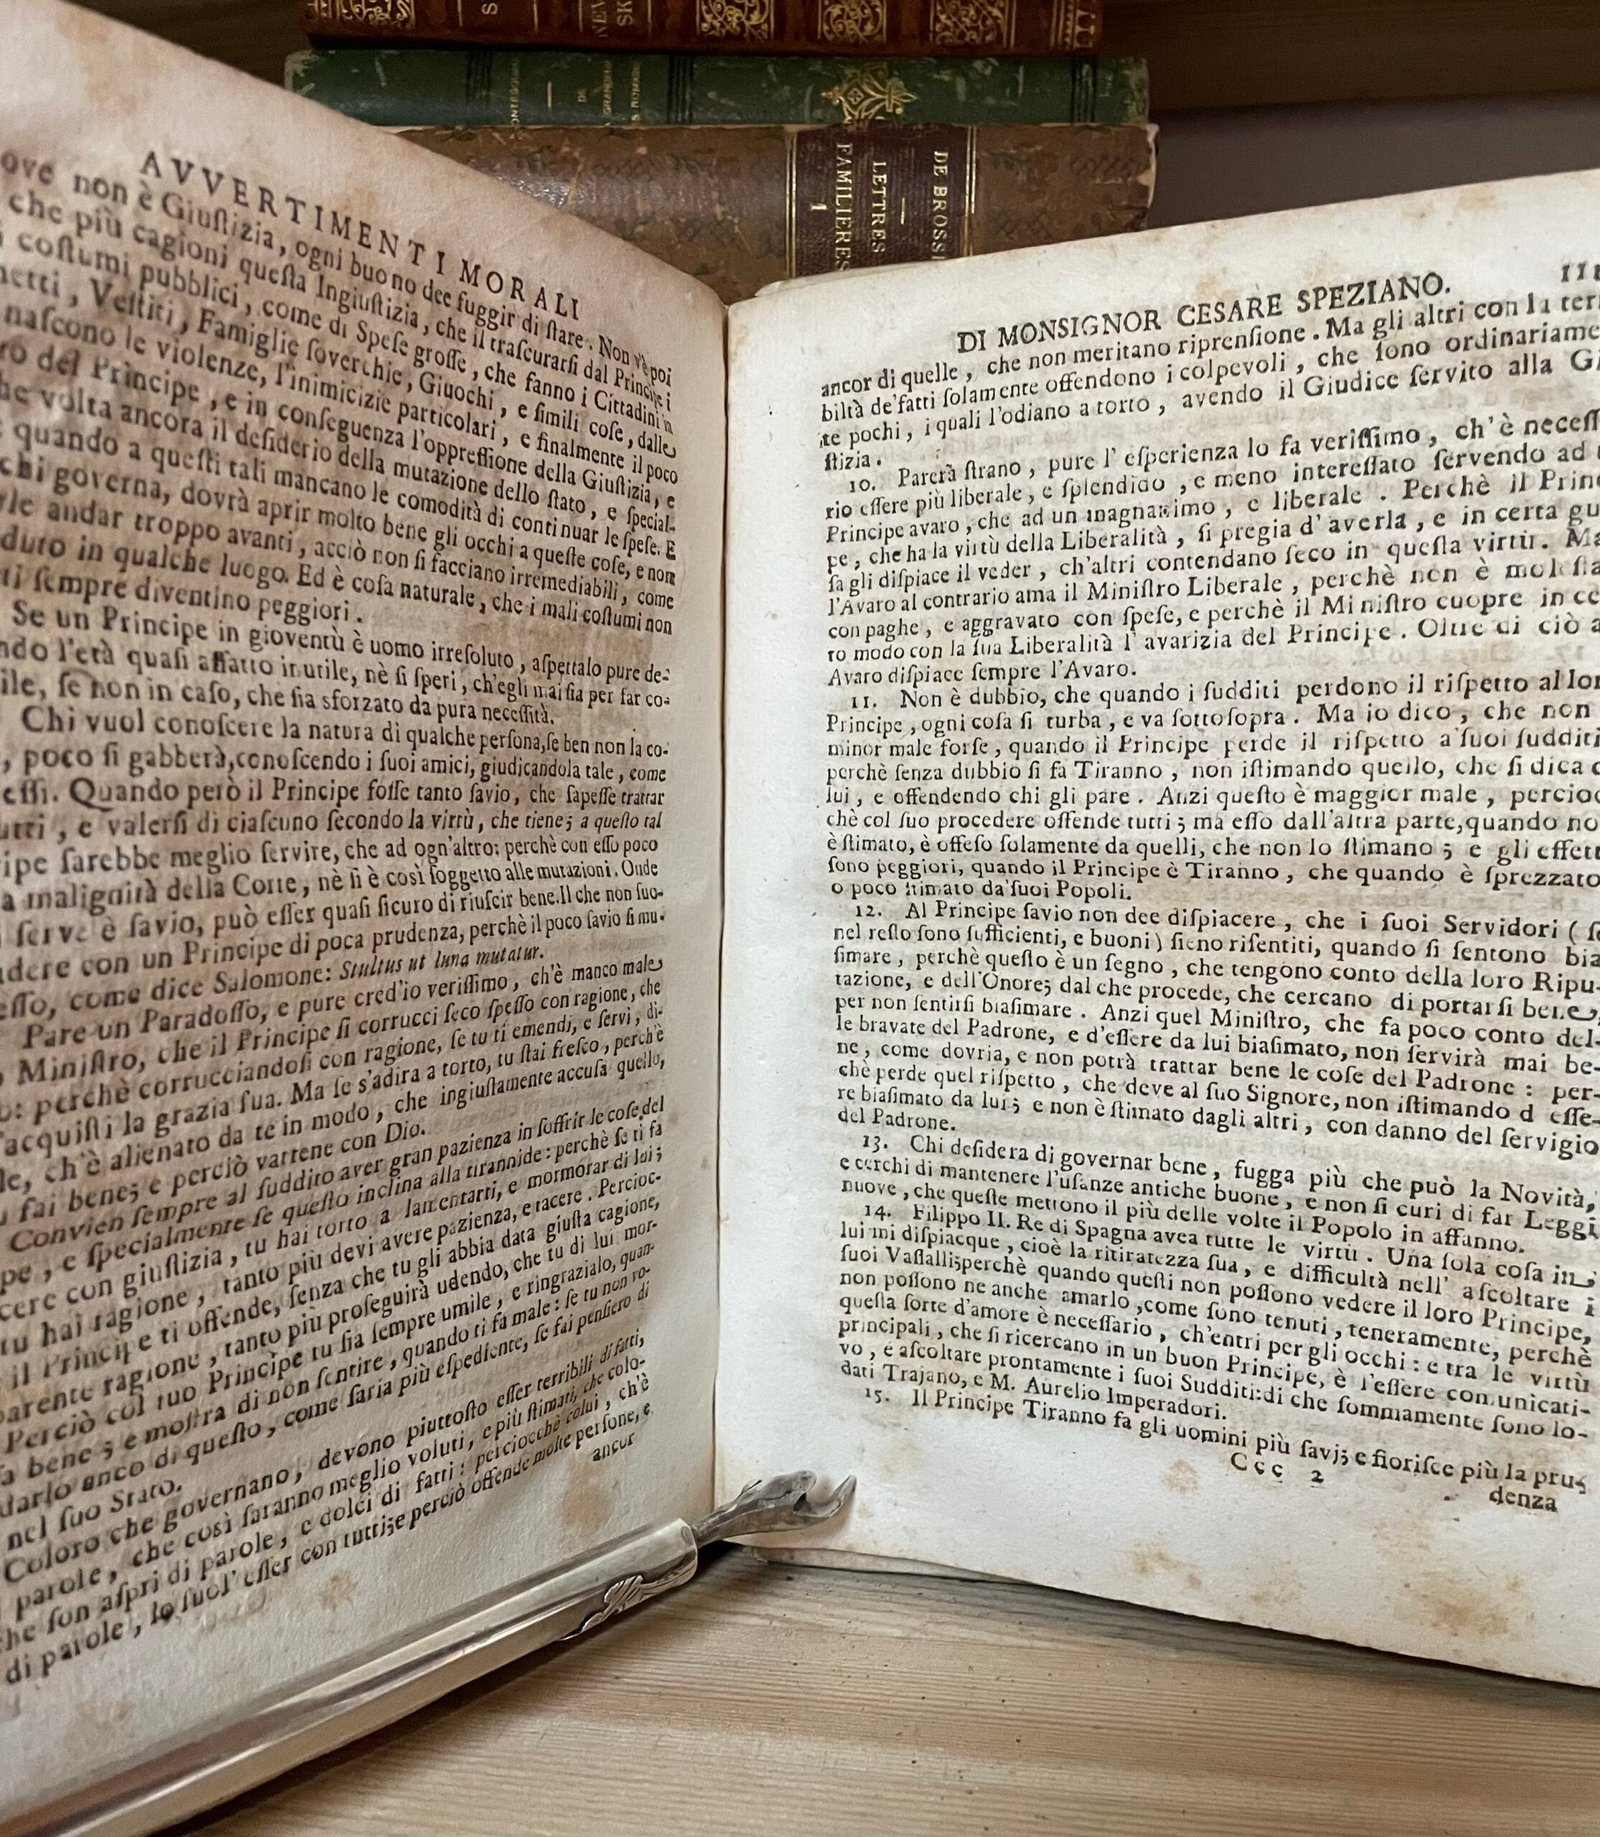 S
NEV
SK
MONTESQ
DE
GRANDEUR
S. ROMAINS
DE BROSS
LETTRES
FAMILIERES
1
AVVERTIMENTI MORALI
ove non è Giuſtizia, ogni buono dee fuggir di ſtare. Non v'è poi
che più cagioni queſta Ingiuſtizia, che il traſcurarſi dal Principe i
coſtumi pubblici, come di Speſe groſſe, che fanno i Cittadini in
netti, Veſtiti, Famiglie ſoverchie, Giuochi, e ſimili coſe, dalle
naſcono le violenze, l'inimicizie particolari, e finalmente il poco
ro del Principe, e in conſeguenza l'oppreſſione della Giuſtizia, e
he volta ancora il deſiderio della mutazione dello ſtato, e ſpecial-
quando a queſti tali mancano le comodità di continuar le ſpeſe. E
chi governa, dovrà aprir molto bene gli occhi a queſte coſe, e non
rle andar troppo avanti, acciò non ſi facciano irremediabili, come
duto in qualche luogo. Ed è coſa naturale, che i mali coſtumi non
ti ſempre diventino peggiori.
Se un Principe in gioventù è uomo irreſoluto, aſpettalo pure de-
ndo l'età quaſi affatto inutile, nè ſi ſperi, ch'egli mai ſia per far co-
ile, ſe non in caſo, che ſia sforzato da pura neceſſità.
Chi vuol conoſcere la natura di qualche perſona, ſe ben non la co-
, poco ſi gabberà, conoſcendo i ſuoi amici, giudicandola tale, come
eſſi. Quando però il Principe foſſe tanto ſavio, che ſapeſſe trattar
utti, e valerſi di ciaſcuno ſecondo la virtù, che tiene; a queſto tal
ipe ſarebbe meglio ſervire, che ad ogn'altro: perchè con eſſo poco
a malignità della Corte, nè ſi è così ſoggetto alle mutazioni. Onde
i ſerve è ſavio, può eſſer quaſi ſicuro di riuſcir bene. Il che non ſuo-
dere con un Principe di poca prudenza, perchè il poco ſavio ſi mu-
eſſo, come dice Salomone: Stultus ut luna mutatur.
Pare un Paradoſſo, e pure cred'io veriſſimo, ch'è manco male
Miniſtro, che il Principe ſi corrucci ſeco ſpeſſo con ragione, che
o: perchè corrucciandoſi con ragione, ſe tu ti emendi, e ſervi, di-
'acquiſti la grazia ſua. Ma ſe s'adira a torto, tu ſtai freſco, perch'è
le, ch'è alienato da te in modo, che ingiuſtamente accuſa quello,
u fai bene; e perciò vattene con Dio.
Convien ſempre al ſuddito aver gran pazienza in ſoffrir le coſe del
pe, e ſpecialmente ſe queſto inclina alla tirannide: perchè ſe ti fa
cere con giuſtizia, tu hai torto a lamentarti, e mormorar di lui;
tu hai ragione, tanto più devi avere pazienza, e tacere. Percioc-
il Principe ti offende, ſenza che tu gli abbia data giuſta cagione,
parente ragione, tanto più proſeguirà udendo, che tu di lui mor-
Perciò col tuo Principe tu ſia ſempre umile, e ringrazialo, quan-
fa bene; e moſtra di non ſentire, quando ti fa male: ſe tu non vo-
darlo anco di queſto, come ſaria più eſpediente, ſe fai penſiero di
nel ſuo Stato.
Coloro che governano, devono piuttoſto eſſer terribili di fatti,
parole, che così ſaranno meglio voluti, e più ſtimati, che colo-
he ſon aſpri di parole, e dolci di fatti: perciocchè colui, ch'è
di parole, lo ſuol' eſſer con tutti; e perciò offende molte perſone, e
ancor
DI MONSIGNOR CESARE SPEZIANO.
ancor di quelle, che non meritano riprenſione. Ma gli altri con la terri
biltà de'fatti ſolamente offendono i colpevoli, che ſono ordinariame
te pochi, i quali l'odiano a torto, avendo il Giudice ſervito alla Gi
ſtizia.
10. Parerà ſtrano, pure l'eſperienza lo fa veriſſimo, ch'è neceſſ
rio eſſere più liberale, e ſplendido, e meno intereſſato ſervendo ad
Principe avaro, che ad un magnanimo, e liberale. Perchè il Prin
pe, che ha la virtù della Liberalità, ſi pregia d'averla, e in certa gu
ſa gli diſpiace il veder, ch'altri contendano ſeco in queſta virtù. Ma
l'Avaro al contrario ama il Miniſtro Liberale, perchè non è moleſta
con paghe, e aggravato con ſpeſe, e perchè il Miniſtro cuopre in ce
to modo con la ſua Liberalità l'avarizia del Principe. Oltre di ciò a
Avaro diſpiace ſempre l'Avaro.
11. Non è dubbio, che quando i ſudditi perdono il riſpetto al lor
Principe, ogni coſa ſi turba, e va ſottoſopra. Ma io dico, che non
minor male forſe, quando il Principe perde il riſpetto a'ſuoi ſudditi
perchè ſenza dubbio ſi fa Tiranno, non iſtimando quello, che ſi dica d
lui, e offendendo chi gli pare. Anzi queſto è maggior male, percioc
chè col ſuo procedere offende tutti; ma eſſo dall'altra parte, quando no
è ſtimato, è offeſo ſolamente da quelli, che non lo ſtimano; e gli effett
ſono peggiori, quando il Principe è Tiranno, che quando è ſprezzato
o poco ſtimato da'ſuoi Popoli.
12. Al Principe ſavio non dee diſpiacere, che i ſuoi Servidori (ſe
nel reſto ſono ſufficienti, e buoni) ſieno riſentiti, quando ſi ſentono bia
ſimare, perchè queſto è un ſegno, che tengono conto della loro Ripu-
tazione, e dell'Onore; dal che procede, che cercano di portarſi bene,
per non ſentirſi biaſimare. Anzi quel Miniſtro, che fa poco conto del-
le bravate del Padrone, e d'eſſere da lui biaſimato, non ſervirà mai be-
ne, come dovria, e non potrà trattar bene le coſe del Padrone: per-
chè perde quel riſpetto, che deve al ſuo Signore, non iſtimando d'eſſe-
re biaſimato da lui; e non è ſtimato dagli altri, con danno del ſervigio
del Padrone.
13. Chi deſidera di governar bene, fugga più che può la Novità,
e cerchi di mantenere l'uſanze antiche buone, e non ſi curi di far Leggi
nuove, che queſte mettono il più delle volte il Popolo in affanno.
14. Filippo II. Re di Spagna avea tutte le virtù. Una ſola coſa in
lui mi diſpiacque, cioè la ritiratezza ſua, e difficultà nell' aſcoltare i
ſuoi Vaſſalli; perchè quando queſti non poſſono vedere il loro Principe,
non poſſono ne anche amarlo, come ſono tenuti, teneramente, perchè
queſta ſorte d'amore è neceſſario, ch'entri per gli occhi: e tra le virtù
principali, che ſi ricercano in un buon Principe, è l'eſſere comunicati-
vo, e aſcoltare prontamente i ſuoi Sudditi: di che ſommamente ſono lo-
dati Trajano, e M. Aurelio Imperadori.
15. Il Principe Tiranno fa gli uomini più ſavj; e fioriſce più la pru-
Ccc 2
denza